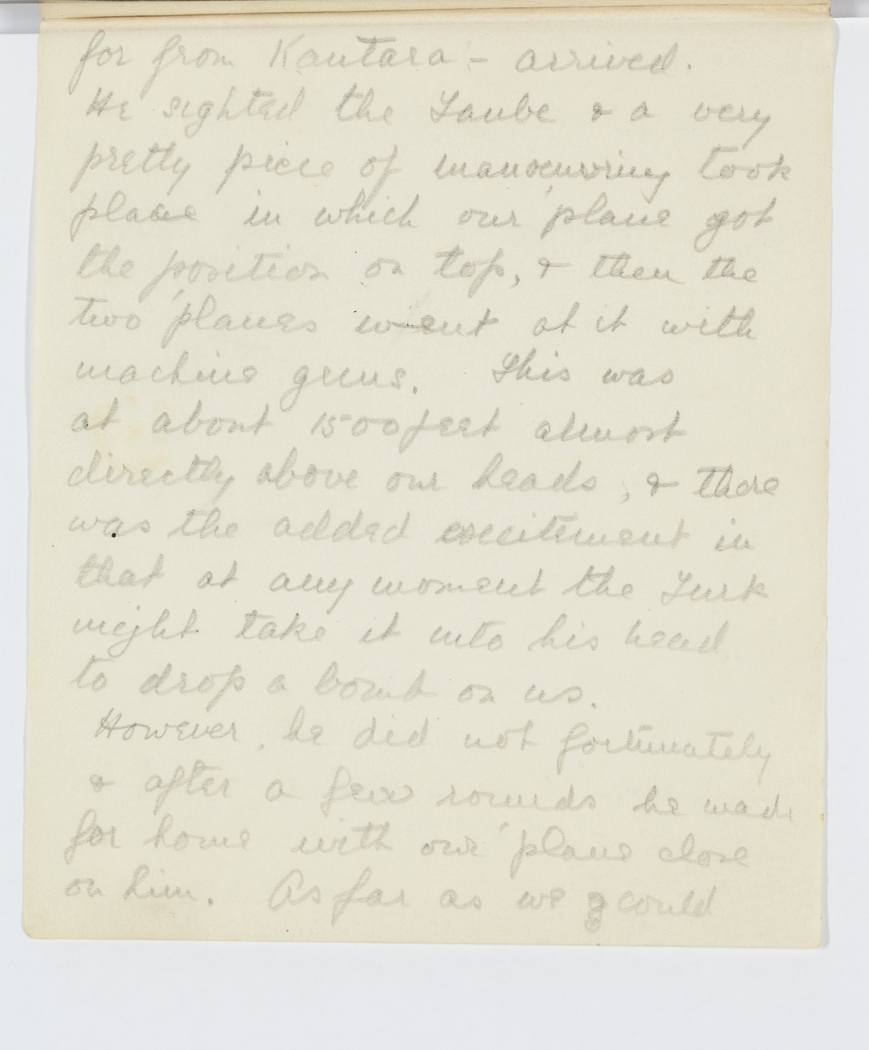 for from Kantara - arrived.
He sighted the Taube & a very
pretty piece of manoeuvring took
place in which our 'plane got
the position on top, & then the
two 'planes went at it with
machine guns. This was
at about 1500 feet almost
directly above our heads, & there
was the added excitement in
that at any moment the Turk
might take it into his head
to drop a bomb on us.
However, he did not fortunately
& after a few rounds he made
for home with our 'plane close
on him. As far as we could